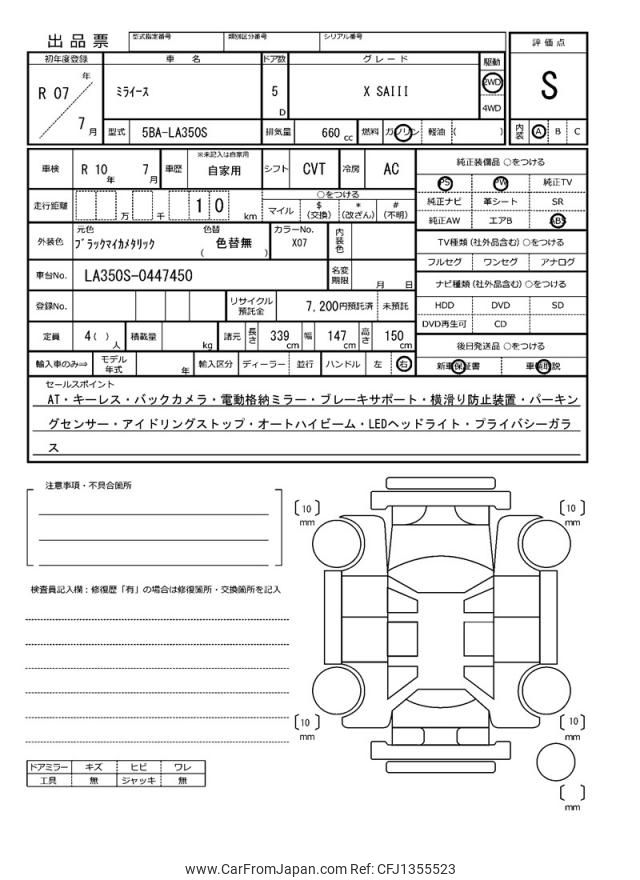 出品票
型式指定番号 類別区分番号 シリアル番号
評価点
初年度登録 車名 ドア数 グレード 駆動
R 07 年 7 月
ミライース
5 D
X SAIII
2WD
4WD
S
型式 5BA-LA350S 排気量 660 cc 燃料 ガソリン 軽油 ( )
内装 A B C
車検 R 10 年 7 月 車歴 ※未記入は自家用 自家用 シフト CVT 冷房 AC
走行距離 万 千 1 0 km
○をつける
マイル $(交換) *(改ざん) #(不明)
外装色 元色 ブラックマイカメタリック 色替 ( 色替無 ) カラーNo. X07 内装色
車台No. LA350S-0447450 名変期限 月 日
登録No. リサイクル預託金 7,200円預託済 未預託
定員 4( ) 人 積載量 kg 諸元 長さ 339 cm 幅 147 cm 高さ 150 cm
輸入車のみ⇒ モデル年式 年 輸入区分 ディーラー 並行 ハンドル 左 右
純正装備品 ○をつける
PS PW 純正TV
純正ナビ 革シート SR
純正AW エアB ABS
TV種類(社外品含む)○をつける
フルセグ ワンセグ アナログ
ナビ種類(社外品含む)○をつける
HDD DVD SD
DVD再生可 CD
後日発送品 ○をつける
新車保証書 車輌取説
セールスポイント
AT・キーレス・バックカメラ・電動格納ミラー・ブレーキサポート・横滑り防止装置・パーキン
グセンサー・アイドリングストップ・オートハイビーム・LEDヘッドライト・プライバシーガラ
ス
注意事項・不具合箇所
検査員記入欄：修復歴「有」の場合は修復箇所・交換箇所を記入
[10] mm
[10] mm
[10] mm
[10] mm
[ ] mm
ドアミラー キズ ヒビ ワレ
工具 無 ジャッキ 無
www.CarFromJapan.com Ref: CFJ1355523